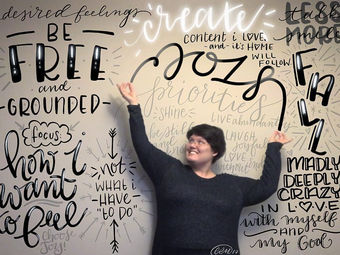 desired feelings
BE
FREE
and
GROUNDED
focus
how i
want
to feel
Choose
Joy!
not
what i
have
"to do"
create
content i love,
and it's HOME
will
follow
joy
priorities
SHINE
be still
LAUGH
LOVE
LIVE abundantly
joyful
LESS
MORE
FALL
MADLY
DEEPLY
CRAZY
IN LOVE
with myself
AND
my God